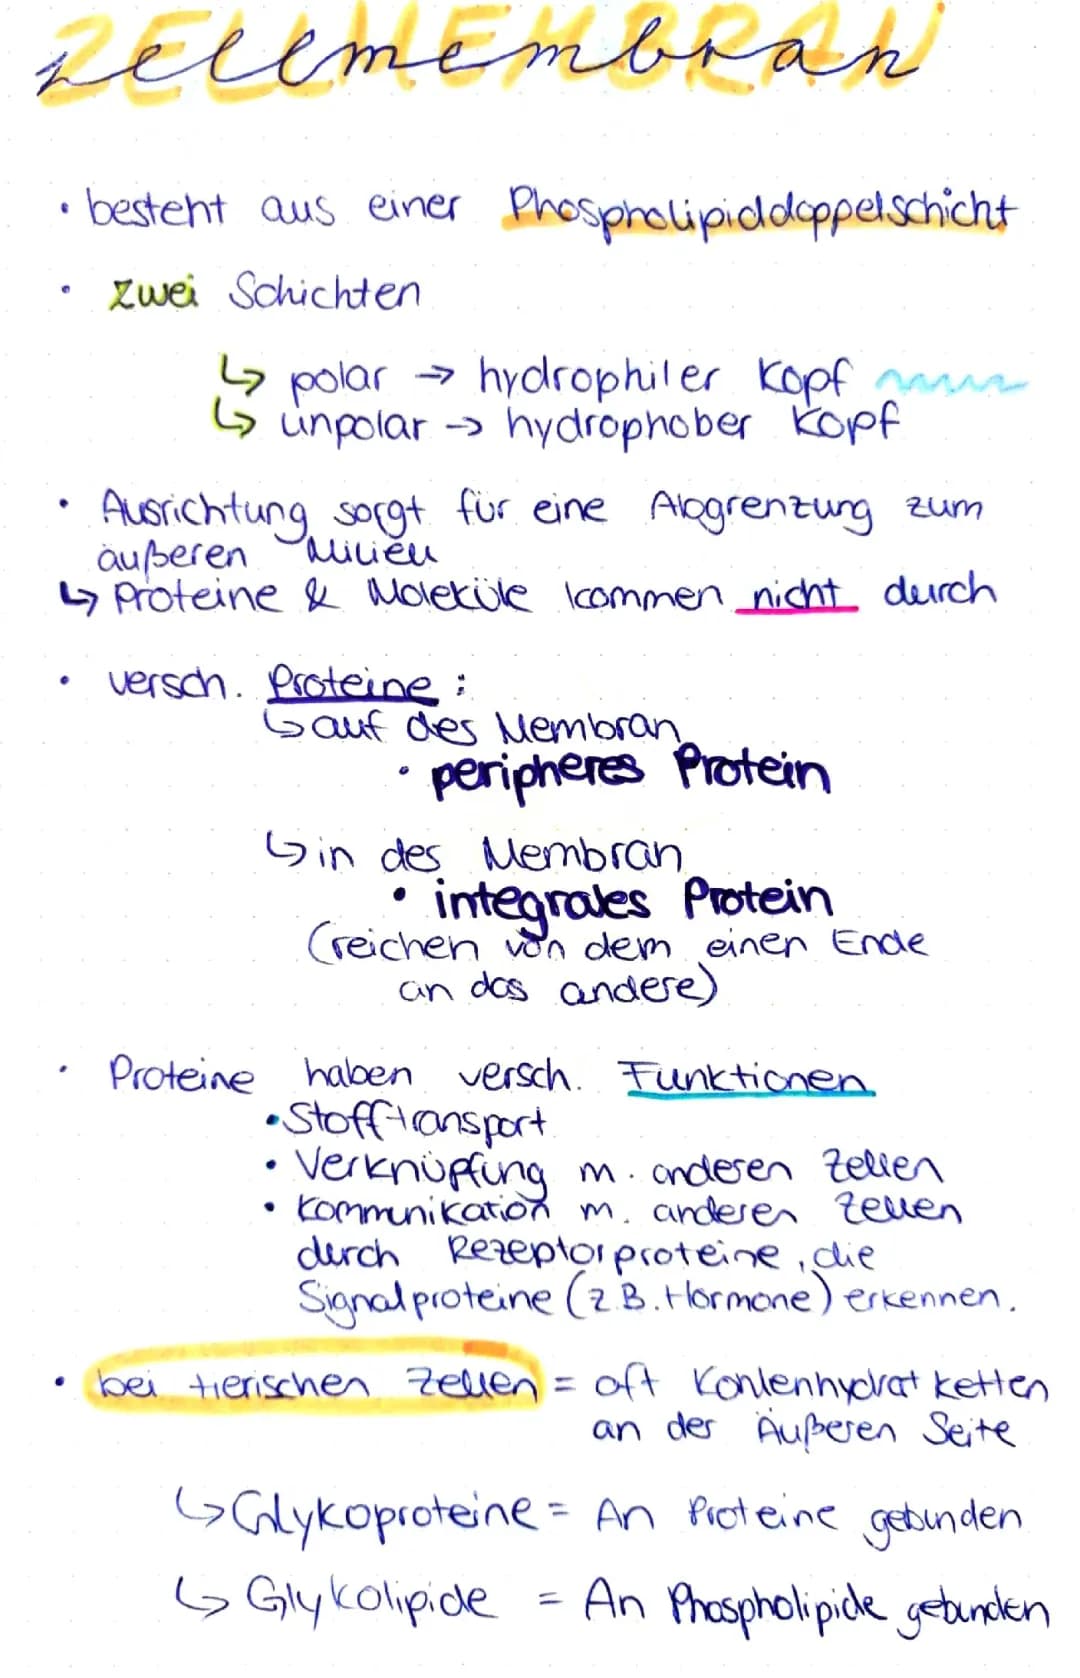 Zellmembran
• besteht aus einer Phospholipiddoppelschicht
• zwei Schichten
↳ polar → hydrophiler Kopf
↳ unpolar → hydrophober Kopf
• Ausrichtung sorgt für eine Abgrenzung zum
äußeren Milieu
↳ Proteine & Moleküle kommen nicht durch
• versch. Proteine:
↳ auf des Membran
• peripheres Protein
↳ in des Membran
• integrales Protein
(reichen von dem einen Ende
an das andere)
• Proteine haben versch. Funktionen
• Stofftransport
• Verknüpfung m. anderen Zellen
• Kommunikation m. anderen Zellen
durch Rezeptorproteine, die
Signalproteine (z.B. Hormone) erkennen.
• bei tierischen Zellen = oft Kohlenhydratketten
an der Äußeren Seite
↳ Glykoproteine = An Proteine gebunden
↳ Glykolipide = An Phospholipide gebunden